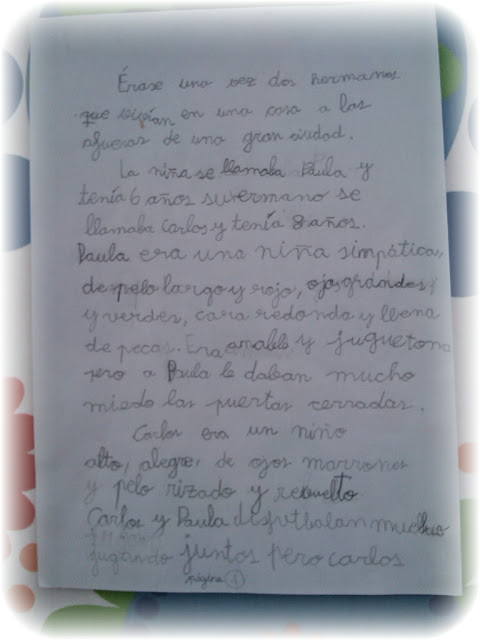 Érase una vez dos hermanos
que vivían en una casa a las
afueras de una gran ciudad.
La niña se llamaba Paula y
tenía 6 años su ermano se
llamaba Carlos y tenía 8 años.
Paula era una niña simpática,
de pelo largo y rojo, ojos grandes y
y verdes, cara redonda y llena
de pecas. Era amable y juguetona
pero a Paula le daban mucho
miedo las puertas cerradas.
Carlos era un niño
alto, alegre, de ojos marrones
y pelo rizado y revuelto
Carlos y Paula disfrutaban mucho
jugando juntos pero carlos
página 1